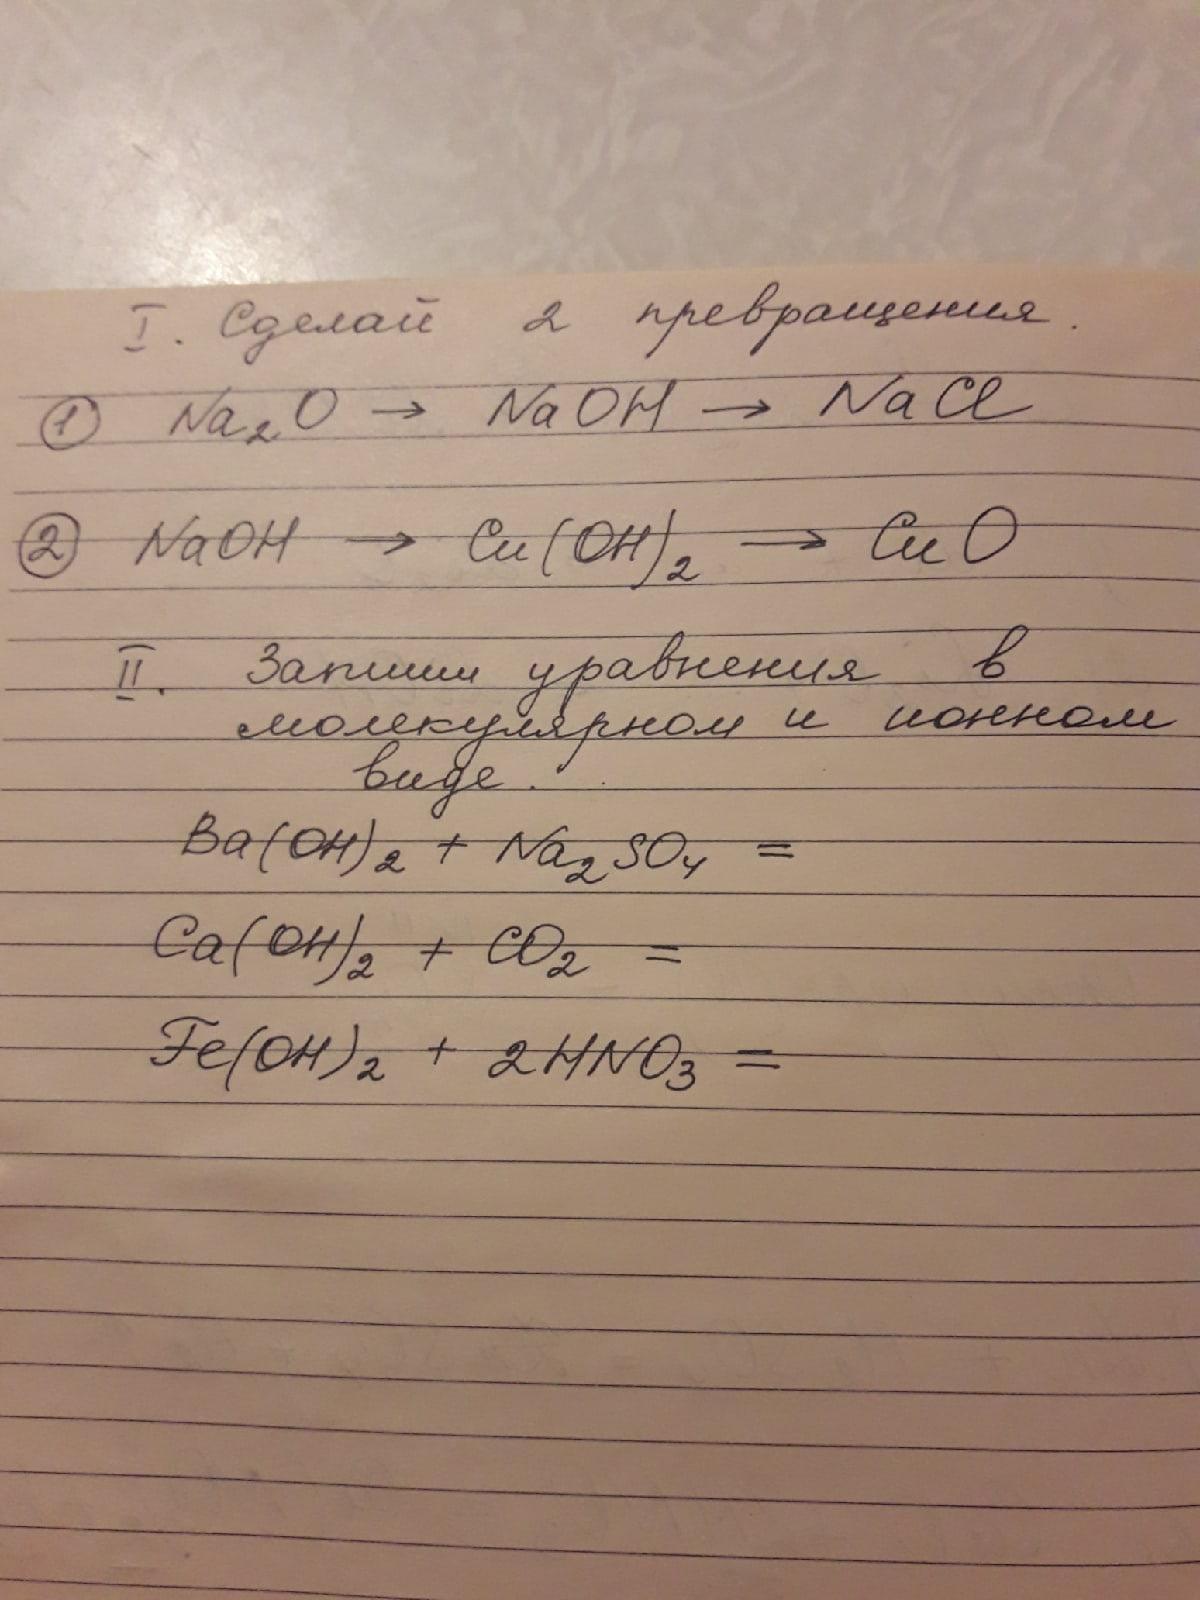 I. Сделай 2 превращения.
① Na₂O → NaOH → NaCl
② NaOH → Cu(OH)₂ → CuO
II. Запиши уравнения в
молекулярном и ионном
виде.
Ba(OH)₂ + Na₂SO₄ =
Ca(OH)₂ + CO₂ =
Fe(OH)₂ + 2HNO₃ =